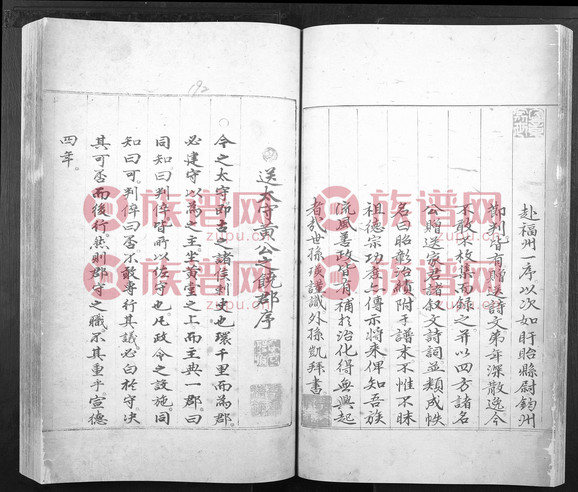 赴福州一序以次如盱眙縣尉鈞州
節判皆有贈送詩文弟年深散逸今
不敢不敘集而録之并以四方諸名
公贈送家君諸叙文詩詞並類成帙
名曰昭彰治績附于譜末不惟不昧
祖德宗功者上傳示將来俾知吾族
流風善政皆有補於治化得無興起
者於世孫瑛謹識外孫凱拜書
192
送太守黃公之饒郡序
今之太守即古之諸侯刺史也環千里而為郡
必建守以為之主坐黃堂之上而主典一郡曰
同知曰判倅皆所以佐守也凡政令之設施同
知曰可判倅曰否不敢專行其議必白於守决
其可否而後行然則郡守之職不其重乎宣德
四年
族谱网
zupu.cn
族谱网
zupu.cn
族谱网
zupu.cn
族谱网
zupu.cn